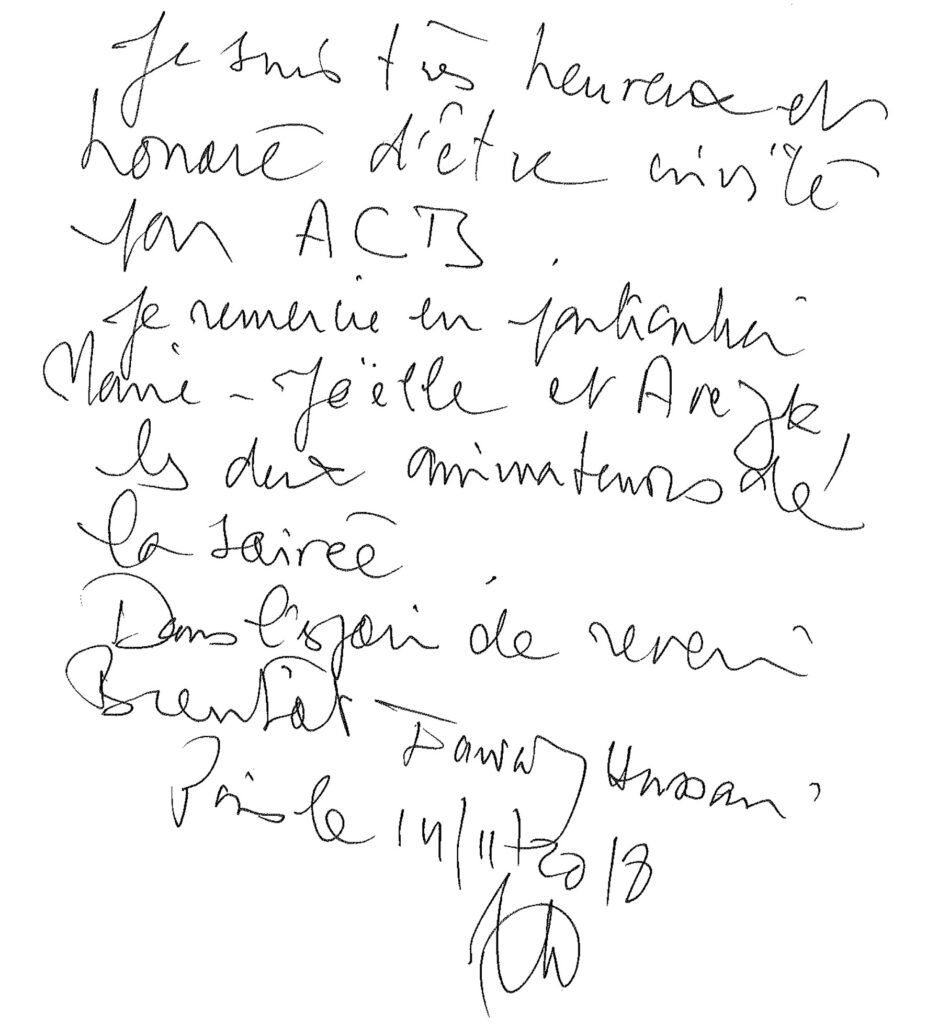 Je suis très heureux et
honoré d'être invité
par ACTB.
Je remercie en particulier
Marie-Joëlle et Arezk
les deux animateurs de
la soirée
Dans l'espoir de revenir
Bientôt Fawaz Hussain
Paris le 14/11/2018